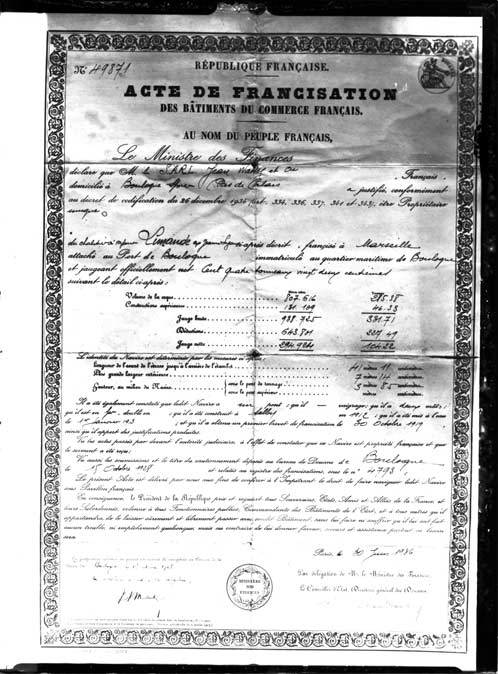 N° 49871
RÉPUBLIQUE FRANÇAISE.
ACTE DE FRANCISATION
DES BÂTIMENTS DU COMMERCE FRANÇAIS.
AU NOM DU PEUPLE FRANÇAIS,
Le Ministre des Finances
déclare que M. la SARL Jean et Cie, Français
domicilié à Boulogne s/mer (Pas de Calais) a justifié, conformément
au décret de codification du 26 décembre 1934 (art. 334, 336, 337, 341 et 343), être Propriétaire
unique
du chalutier à vapeur Limande ex après décrit: francisé à Marseille
attaché au Port de Boulogne immatriculé au quartier maritime de Boulogne
et jaugeant officiellement net Cent quatre tonneaux vingt deux centièmes
suivant le détail ci-après:
Volume de la coque 807.616 285.38
Constructions supérieures 131.109 46.33
Jauge brute 938.725 331.71
Déductions
Jauge nette 104.22
L'identité du Navire est déterminée par les mesures ci-après:
Longueur de l'avant de l'étrave jusqu'à l'arrière de l'étambot 41 mètres 11 centièmes
Plus grande largeur extérieure 7 mètres centièmes
Contour, au milieu du Navire sous le pont de tonnage 5 mètres 85 centièmes
sous le pont supérieur mètres centièmes
Il a été également constaté que ledit Navire a un pont; qu'il
qu'il est en fer, doublé en; qu'il a été construit à en 1912; qu'il a été mis à l'eau
le janvier 1913; et qu'il a obtenu un premier brevet de francisation le 30 Octobre 1919
ainsi qu'il appert des justifications produites.
Vu les actes passés par devant l'autorité judiciaire à l'effet de constater que ce Navire est propriété française et que
le serment a été reçu;
Vu aussi la soumission et le titre du cautionnement déposés au bureau de Douane de Boulogne
le 15 Octobre et relatés au registre des francisations, sous le n° 4793;
Le présent Acte est délivré par nous aux fins de conférer à l'Impétrant le droit de faire naviguer ledit Navire
sous Pavillon français.
En conséquence, le Président de la République prie et requiert tous Souverains, États, Amis et Alliés de la France et
leurs Subordonnés, ordonne à tous Fonctionnaires publics, Commandants des Bâtiments de l'État, et à tous autres qu'il
appartiendra, de le laisser sûrement et librement passer avec sondit Bâtiment, sans lui faire ni souffrir qu'il lui soit fait
aucun trouble, ni empêchement quelconque, mais au contraire de lui donner faveur, secours et assistance partout où besoin
sera.
Paris, le 30 Juin 1936
Par délégation de M. le Ministre des Finances
Le Conseiller d'État, Directeur général des Douanes
MINISTÈRE DES FINANCES